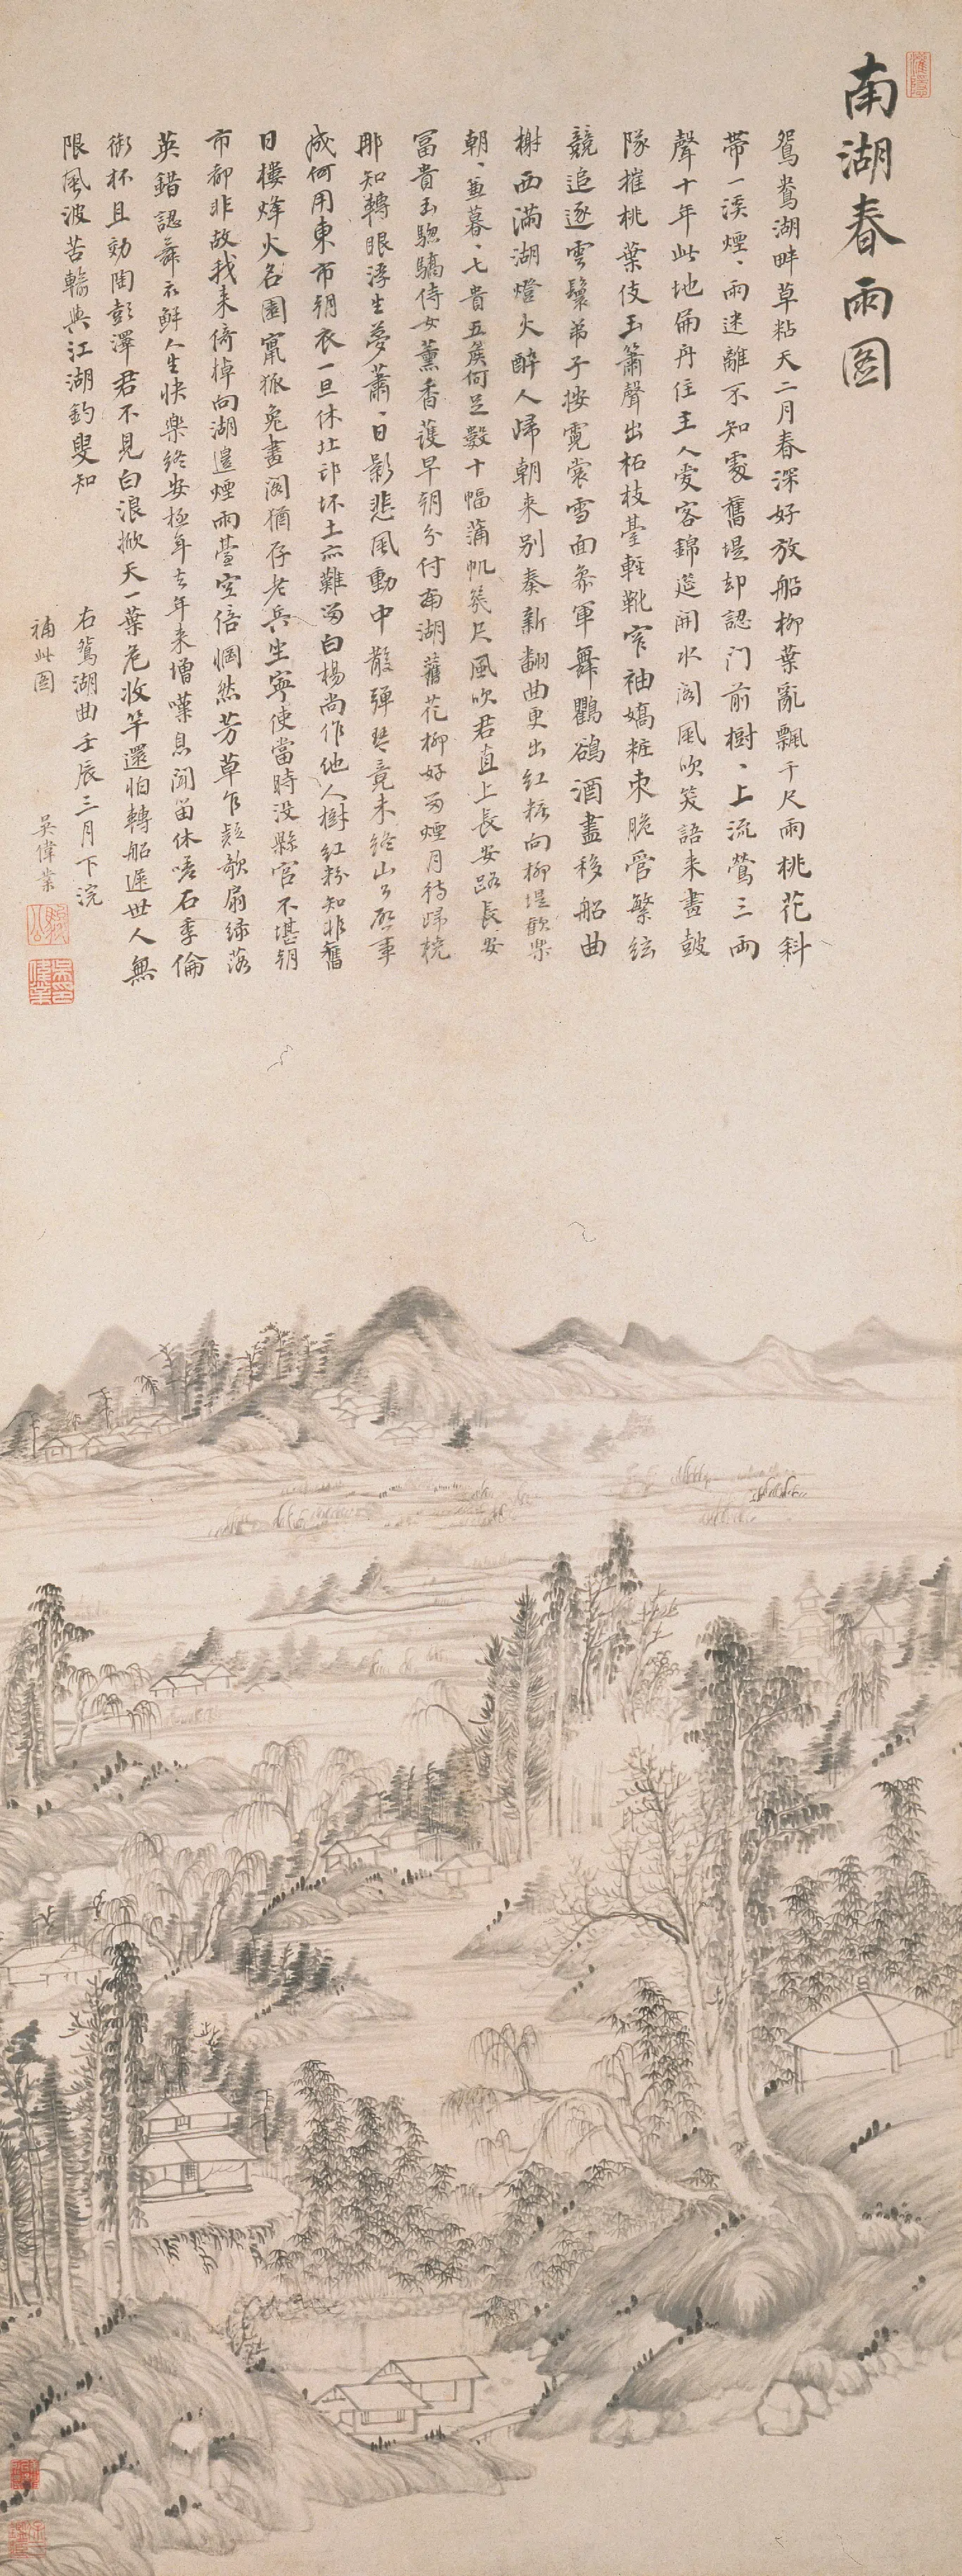 南湖春雨圖
鴛鴦湖畔草粘天二月春深好放船柳葉亂飄千尺雨桃花斜
帶一溪煙、雨迷離不知處舊堤却認門前樹、上流鶯三兩
聲十年此地扁舟住主人愛客錦筵開水閣風吹笑語来畫鼓
隊催桃葉伎玉簫聲出柘枝臺輕靴窄袖嬌粧束脆管繁絃
競追逐雲鬟弟子按霓裳雪面參軍舞鸜鵒酒盡移船曲
榭西滿湖燈火醉人歸朝来別奏新翻曲更出紅粧向柳堤歡樂
朝、兼暮、七貴五侯何足數十幅蒲帆幾尺風吹君直上長安路長安
富貴玉驄驕侍女薰香護早朝分付南湖舊花柳好留煙月待歸橈
那知轉眼浮生夢蕭、日影悲風動中散彈琴竟未終山公啟事
成何用東市朝衣一旦休北邙抔土亦難留白楊尚作他人樹紅粉知非舊
日樓烽火名園竄狐兔畫閣猶存老兵坐寧使當時没縣官不堪朝
市都非故我来倚棹向湖邊煙雨臺空倍惘然芳草乍疑歌扇綠落
英錯認舞衣鮮人生快樂終安極年去年来增嘆息聞笛休嗟石季倫
銜杯且効陶彭澤君不見白浪掀天一葉危收竿還怕轉船遲世人無
限風波苦輸與江湖釣叟知
右鴛湖曲壬辰三月下浣
補此圖 吳偉業
駿公
吳偉業印
灌隱